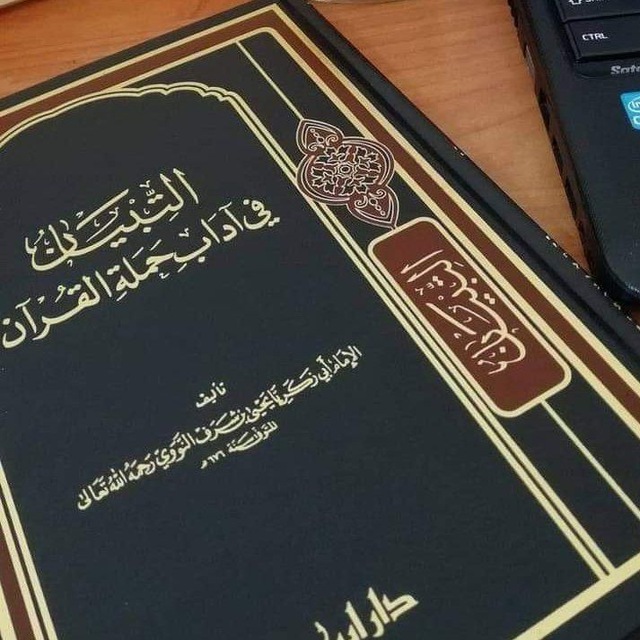 التبيان
في آداب حملة القرآن
تأليف
الإمام أبي زكريا يحيى بن شرف النووي رحمه الله تعالى
المتوفى سنة ٦٧٦هـ
دار ابن
التبيان
CTRL